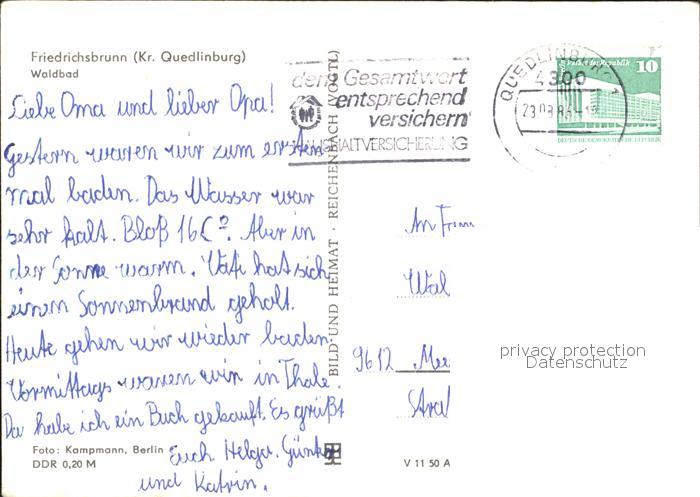 Friedrichsbrunn (Kr. Quedlinburg)
Waldbad
Liebe Oma und lieber Opa!
Gestern waren wir zum ersten
mal baden. Das Wasser war
sehr kalt. Bloß 16 C°. Aber in
der Sonne warm. Vati hat sich
einen Sonnenbrand geholt.
Heute gehen wir wieder baden.
Vormittags waren wir in Thale.
Da habe ich ein Buch gekauft. Es grüßt
Euch Helga, Günter
und Katrin.
Foto: Kampmann, Berlin
DDR 0,20 M
BILD UND HEIMAT · REICHENBACH (VOGTL)
V 11 50 A
dem Gesamtwert
entsprechend
versichern
HAUSHALTVERSICHERUNG
QUEDLINBURG 1
4300
Palast der Republik
10
DEUTSCHE DEMOKRATISCHE REPUBLIK
An
Wal
9612 Mee
Stral
privacy protection
Datenschutz